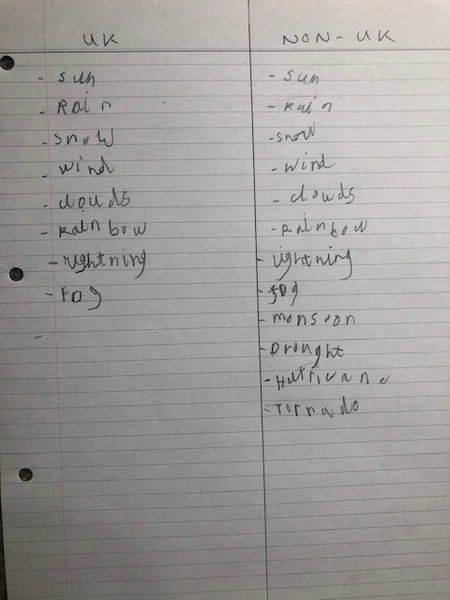 UK
- Sun
- Rain
- Snow
- Wind
- clouds
- Rainbow
- lightning
- Fog
-
NON-UK
- Sun
- Rain
- Snow
- Wind
- clouds
- Rainbow
- lightning
- fog
- monsoon
- Drought
- Hurricane
- Tornado